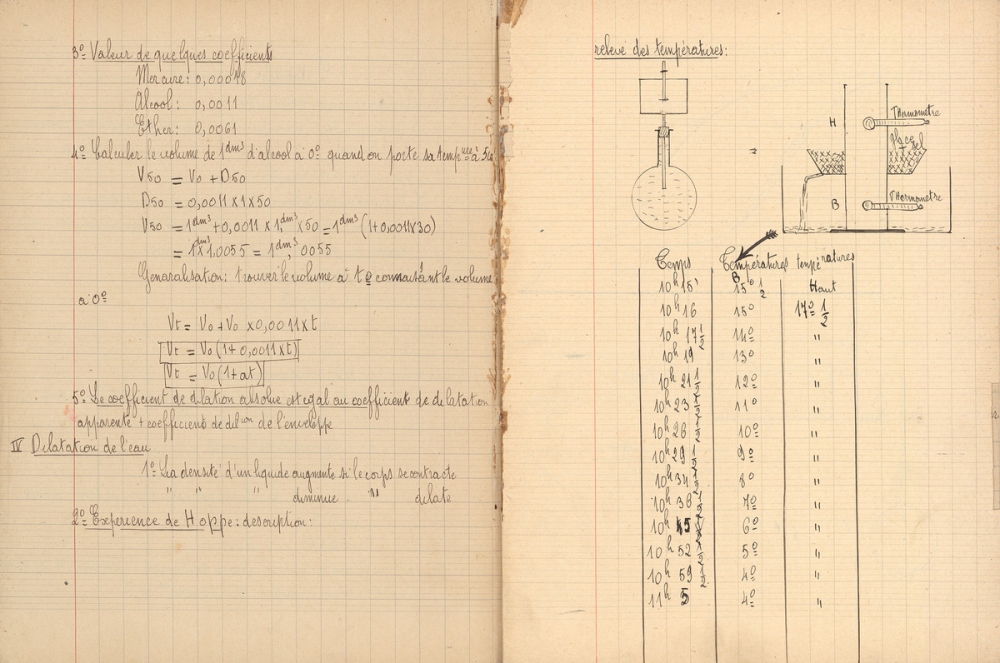 3º Valeur de quelques coefficients
Mercure: 0,00018
Alcool: 0,0011
Ether: 0,0061
4º Calculer le volume de 1 dm³ d'alcool à 0º quand on porte sa temp à 50
V50 = V0 + D50
D50 = 0,0011 x 1 x 50
V50 = 1dm³ + 0,0011 x 1dm³ x 50 = 1dm³ (1+0,0011x30)
= 1dm³x1,0055 = 1dm³,0055
Genaralisation: trouver le volume à t connaissant le volume
a 0º
Vt = V0 + V0 x 0,0011 x t
Vt = V0 (1 + 0,0011 x t)
Vt = V0 (1 + at)
5º Le coefficient de dilation absolue est egal au coefficient de dilatation
apparente + coefficient de dil de l'enveloppe
IV Dilatation de l'eau
1º La densité d'un liquide augmente si le corps se contracte
" " " diminue " dilate
2º Experience de Hoppe: description:
relevé des températures:
H
Thermomètre
glace
+
sel
B
Thermomètre
Temps Températures températures
B Haut
10h 15' 15º 1/2
10h 16 15º 17º 1/2
10h 17 1/2 14º "
10h 19 13º "
10h 21 1/2 12º "
10h 23 11º "
10h 26 10º "
10h 29 9º "
10h 34 8º "
10h 38 7º "
10h 45 6º "
10h 52 5º "
10h 59 4º "
11h 5 4º "